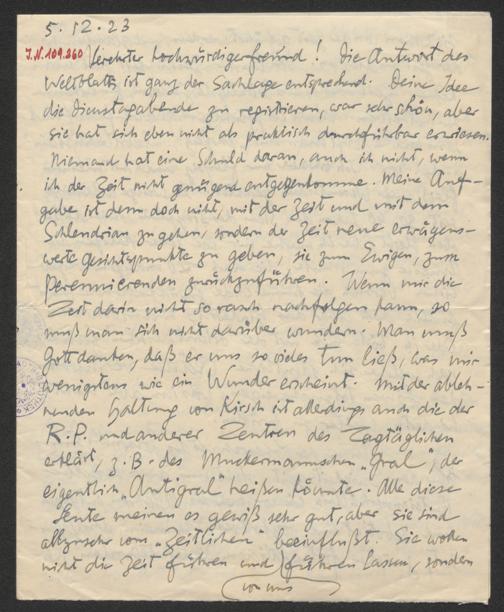 5.12.23
I.N. 109.260
Verehrter hochwürdiger Freund! Die Antwort des
Weltblatts ist ganz der Sachlage entsprechend. Deine Idee
die Dienstagabende zu registrieren, war sehr schön, aber
sie hat sich eben nicht als praktisch durchführbar erwiesen.
Niemand hat eine Schuld daran, auch ich nicht, wenn
ich der Zeit nicht genügend entgegenkomme. Meine Auf-
gabe ist denn doch nicht, mit der Zeit und mit dem
Schlendrian zu gehen, sondern der Zeit neue erwägens-
werte Gesichtspunkte zu geben, sie zum Ewigen, zum
Perennierenden zurückzuführen. Wenn mir die
Zeit darin nicht so rasch nachfolgen kann, so
muß man sich nicht darüber wundern. Man muß
Gott danken, daß er uns so vieles tun ließ, was mir
wenigstens wie ein Wunder erscheint. Mit der ableh-
nenden Haltung von Kirsch ist allerdings auch die der
R.P. und anderer Zentren des Tagtäglichen
erklärt, z.B. des Muckermannschen „Gral", der
eigentlich „Antigral" heißen könnte. Alle diese
Leute meinen es gewiß sehr gut, aber sie sind
allzusehr vom „Zeitlichen" beeinflußt. Sie wollen
nicht die Zeit führen und führen lassen, sondern
von uns